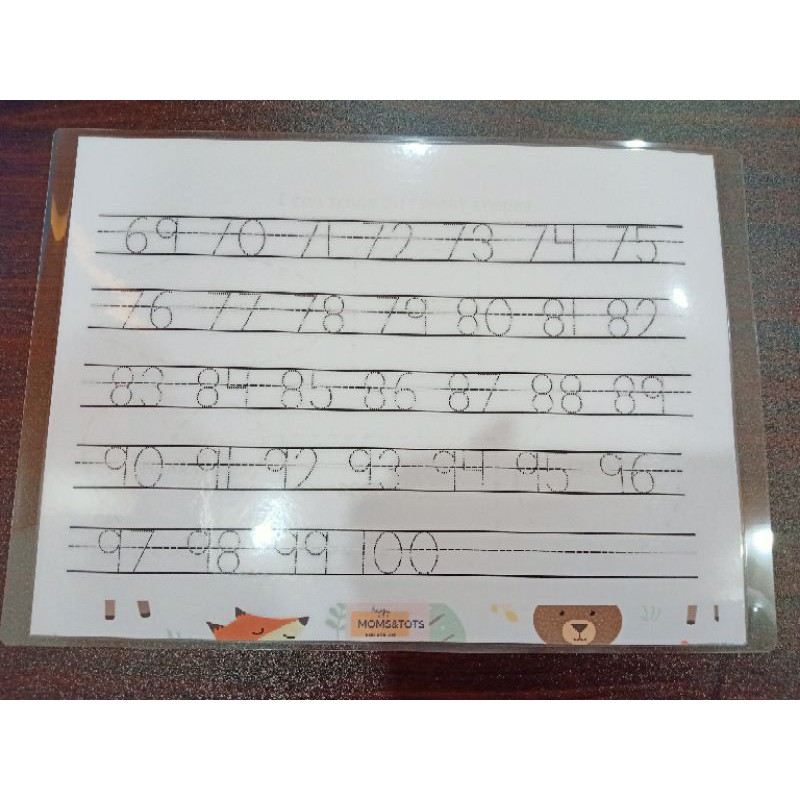 69 70 71 72 73 74 75
76 77 78 79 80 81 82
83 84 85 86 87 88 89
90 91 92 93 94 95 96
97 98 99 100
happy
MOMS&TOTS